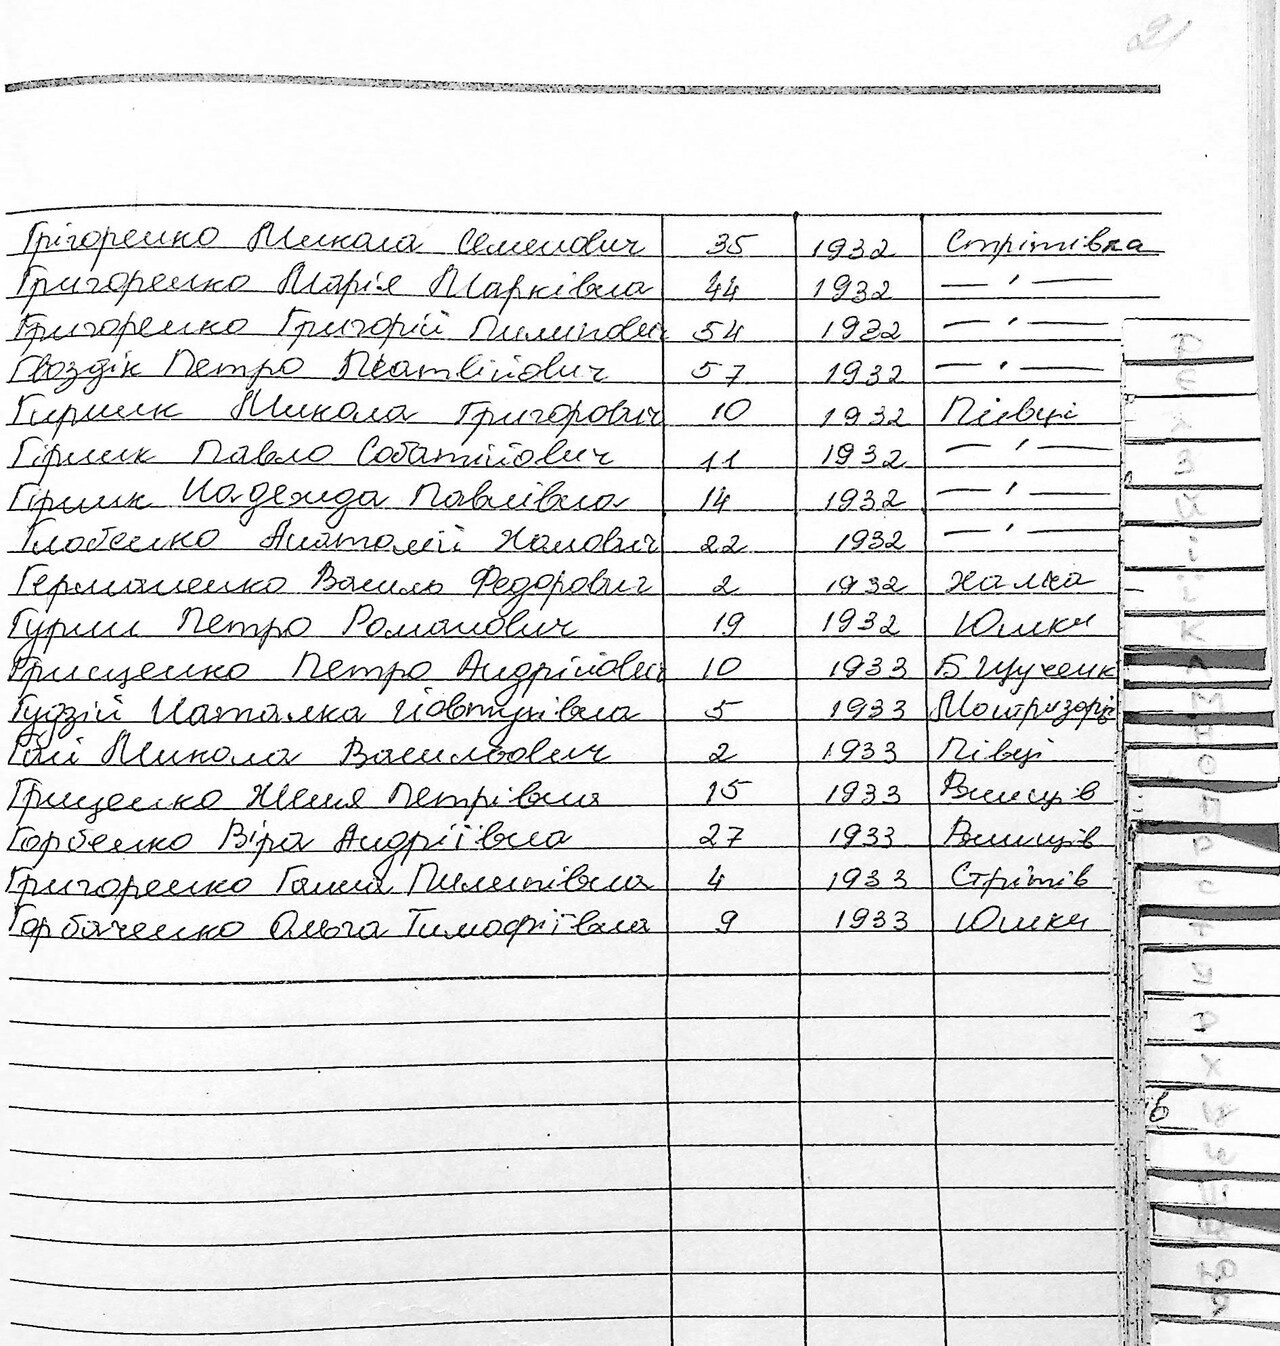 21
Григоренко Микола Семенович 35 1932 Стрітівка
Григоренко Марія Марківна 44 1932 — ' —
Григоренко Григорій Пилипович 54 1932 — ' —
Гвоздік Петро Матвійович 57 1932 — ' —
Гирник Микола Григорович 10 1932 Півці
Гірник Павло Собатійович 11 1932 — ' —
Гірник Надежда Павлівна 14 1932 — ' —
Глобенко Анатолій Ханович 22 1932 — ' —
Германенко Василь Федорович 2 1932 Халча
Гурин Петро Романович 19 1932 Юшки
Грищенко Петро Андрійович 10 1933 Б Щученк
Гудзій Наталка Йовтухівна 5 1933
Гай Микола Васильович 2 1933 Півці
Гриценко Женя Петрівна 15 1933 Винців
Горбенко Віра Андріївна 27 1933 Винців
Григоренко Ганна Пилипівна 4 1933 Стрітів
Горбаченко Ольга Тимофіївна 9 1933 Юшки